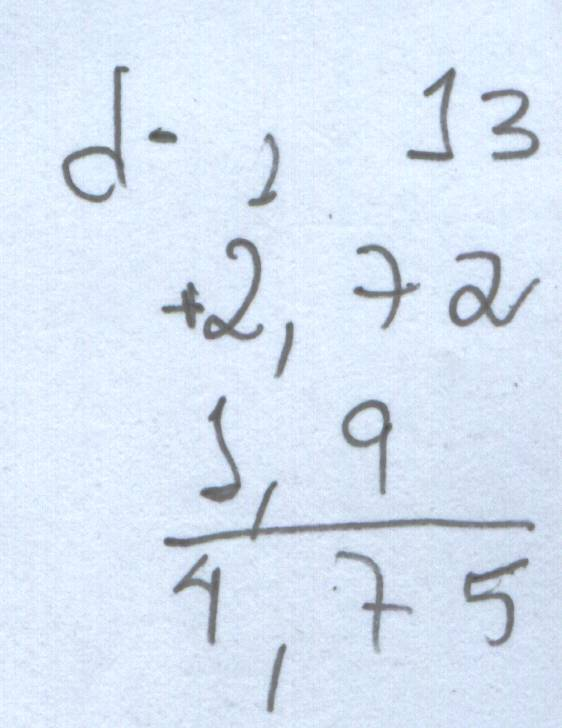 d- , 13
+2, 72
1, 9
4, 75